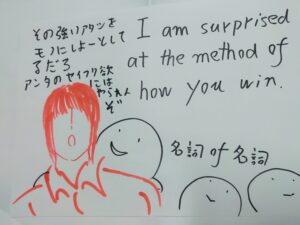 その強いアタシを
モノにしよーとして
るだろ
アンタのセイフク欲
には
やられん
ぞ
I am surprised
at the method of
how you win.
名詞 of 名詞